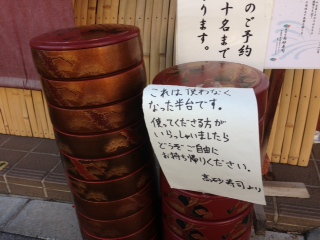 のご予約
十名まで
ります。
これは使わなく
なった半台です。
使ってくださる方が
いらっしゃいましたら
どうぞご自由に
お持ち帰りください。
高砂寿司より